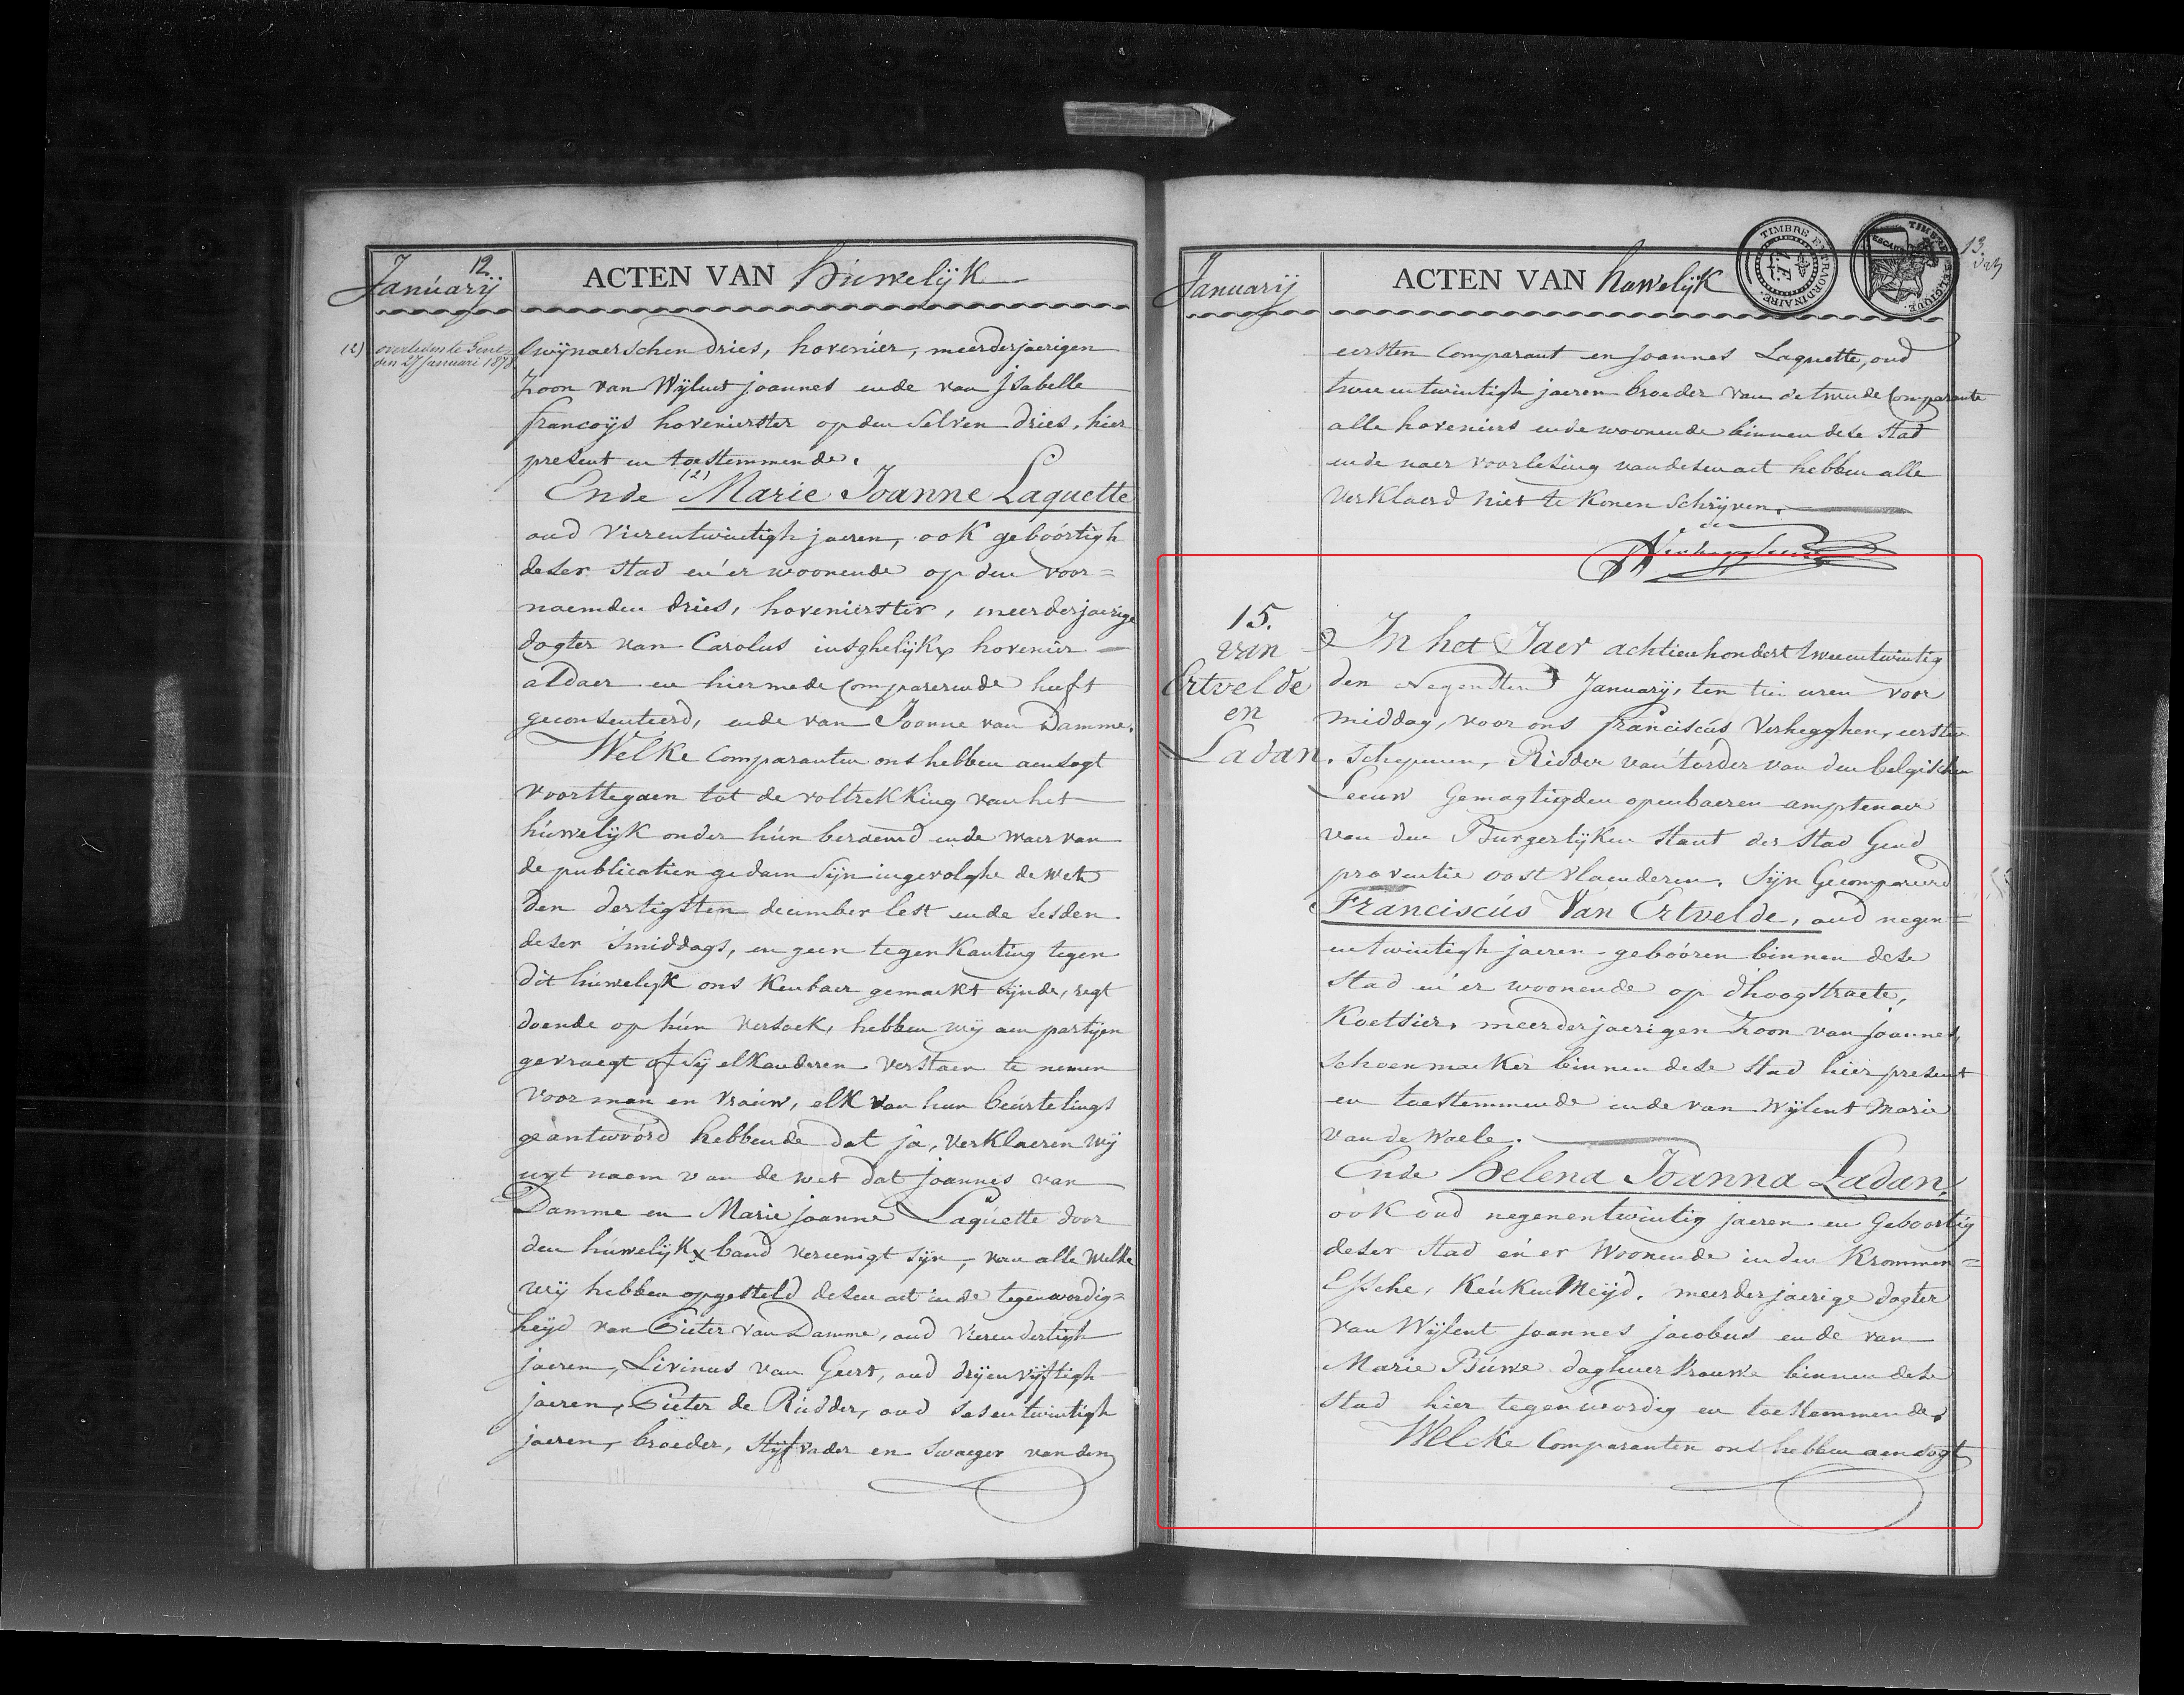 12.
Január̈y
ACTEN VAN húwelÿk
(2) overleden te Gent
den 27 Januari 1878
Swÿnaerschen dries, hovenier, meerderjaerigen
Zoon van Wÿlent joannes ende van jsabelle
francoÿs hovenierster op den Selven dries, hier
present en toestemmende.
(2)
Ende Marie Joanne Laquette
oud Vierentwintigh jaeren, ook geboórtigh
deser stad en er woonende op den voor=
noemden dries, hovenierster, meerderjaerige
dogter van Carolus insghelÿkx hovenier
aldaer en hiermede Comparerende heeft
geconsenteerd, ende van Joanne van Damme.
Welke Comparanten ons hebben aensogt
voorttegaen tot de voltrekking van het
húwelÿk onder hún beraemd ende waer van
de publicatien gedaen Sÿn ingevolghe de wet
den dertigsten december lest ende sesden
deser 'smiddags, en geen tegenkanting tegen
dit húwelÿk ons kenbaer gemaekt sÿnde, regt
doende op hún versoek, hebben wÿ aen partÿen
gevraegt of Sÿ elkanderen verstaen te nemen
voor man en vrouw, elk van hun beúrtelings
geantwoórd hebbende dat ja, verklaeren wÿ
uyt naem van de wet dat joannes van
Damme en Marie joanne Laqúette door
den húwelÿkx band vereenigt sÿn, van alle welke
wÿ hebben opgesteld desen act in de tegenwordig=
heÿd van Pieter van Damme, oud vierendertigh
jaeren, Livinus van Geert, oud drÿenvÿftigh
jaeren, Pieter de Ridder, oud sesentwintigh
jaeren, broeder, stÿfvader en Swaeger van den
Januarÿ
ACTEN VAN huwelÿk
TIMBRE EXTRAORDINAIRE.
TIMBRE BELGIQUE.
ESCAUT
13.
eersten Comparant en joannes Laquette, oud
tweeentwintigh jaeren broeder van de tweede Comparante
alle hoveniers ende woonende binnen dese stad
ende naer voorlesing van desen act hebben alle
verklaerd niet te konen schrÿven.
Verhegghen
15.
van
Ertvelde
en
Ladan.
In het Jaer achtienhondert tweeentwintig
den Negensten January, ten tien uren voor
middag, voor ons franciscús Verhegghen, eersten
Schepenen, Ridder van 't order van den belgischen
Leeuw Gemagtigden openbaeren amptenaer
van den Burgerlÿken Stant der Stad Gend
provintie oost vlaenderen. Sÿn Gecompareerd
Franciscús Van Ertvelde, oud negen=
entwintigh jaeren geboóren binnen dese
Stad en er woonende op d'hoogstraete,
Koetsier, meerderjaerigen Zoon van joannes,
schoenmaeker binnen dese Stad hier present
en toestemmende ende van Wÿlent Marie
van de Waele.
Ende Helena Joanna Ladan,
ook oud negenentwintig jaeren en Geboortig
deser stad en er Woonende in den Krommen=
Essche, KeúkenMeÿd, meerderjaerige dogter
van Wÿlent joannes jacobus ende van
Marie Búwe daghuer vrouwe binnen dese
stad hier tegenwordig en toestemmende.
Welcke Comparanten ons hebben aensogt